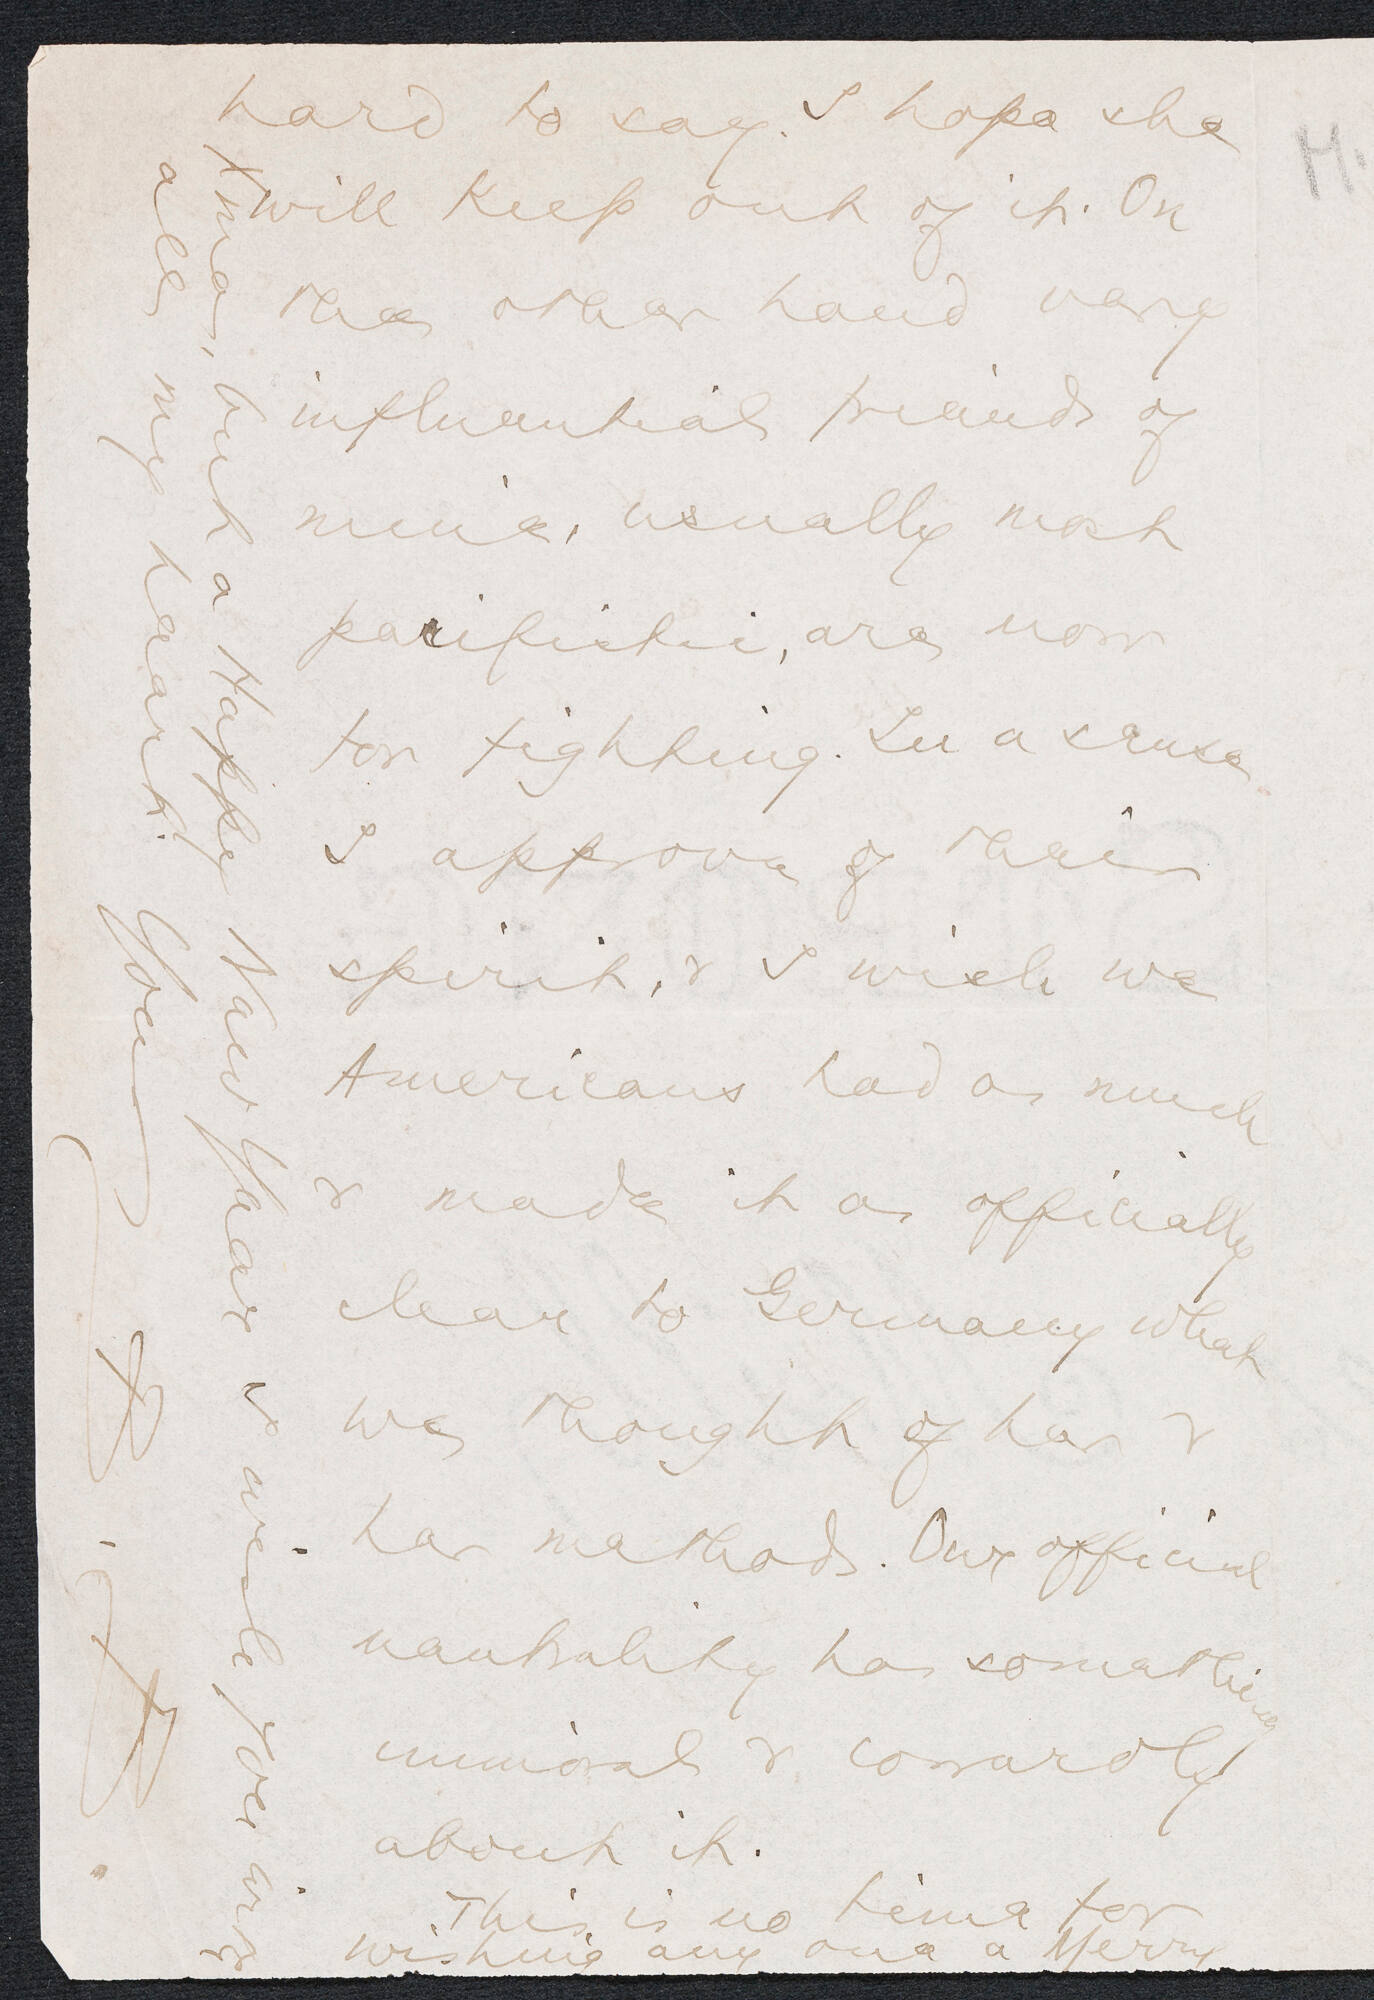 hard to say. I hope she
will keep out of it. On
the other hand very
influential friends of
mine, usually most
pacifistic, are now
for fighting. In a sense
I approve of their
spirit, & I wish we
Americans had as much
& made it as officially
clear to Germany what
we thought of her &
her methods. Our official
neutrality has something
immoral & cowardly
about it.
This is no time for
wishing any one a Merry
Xmas, but a Happy New Year I wish you with
all my heart.
Your
B. B.
M.